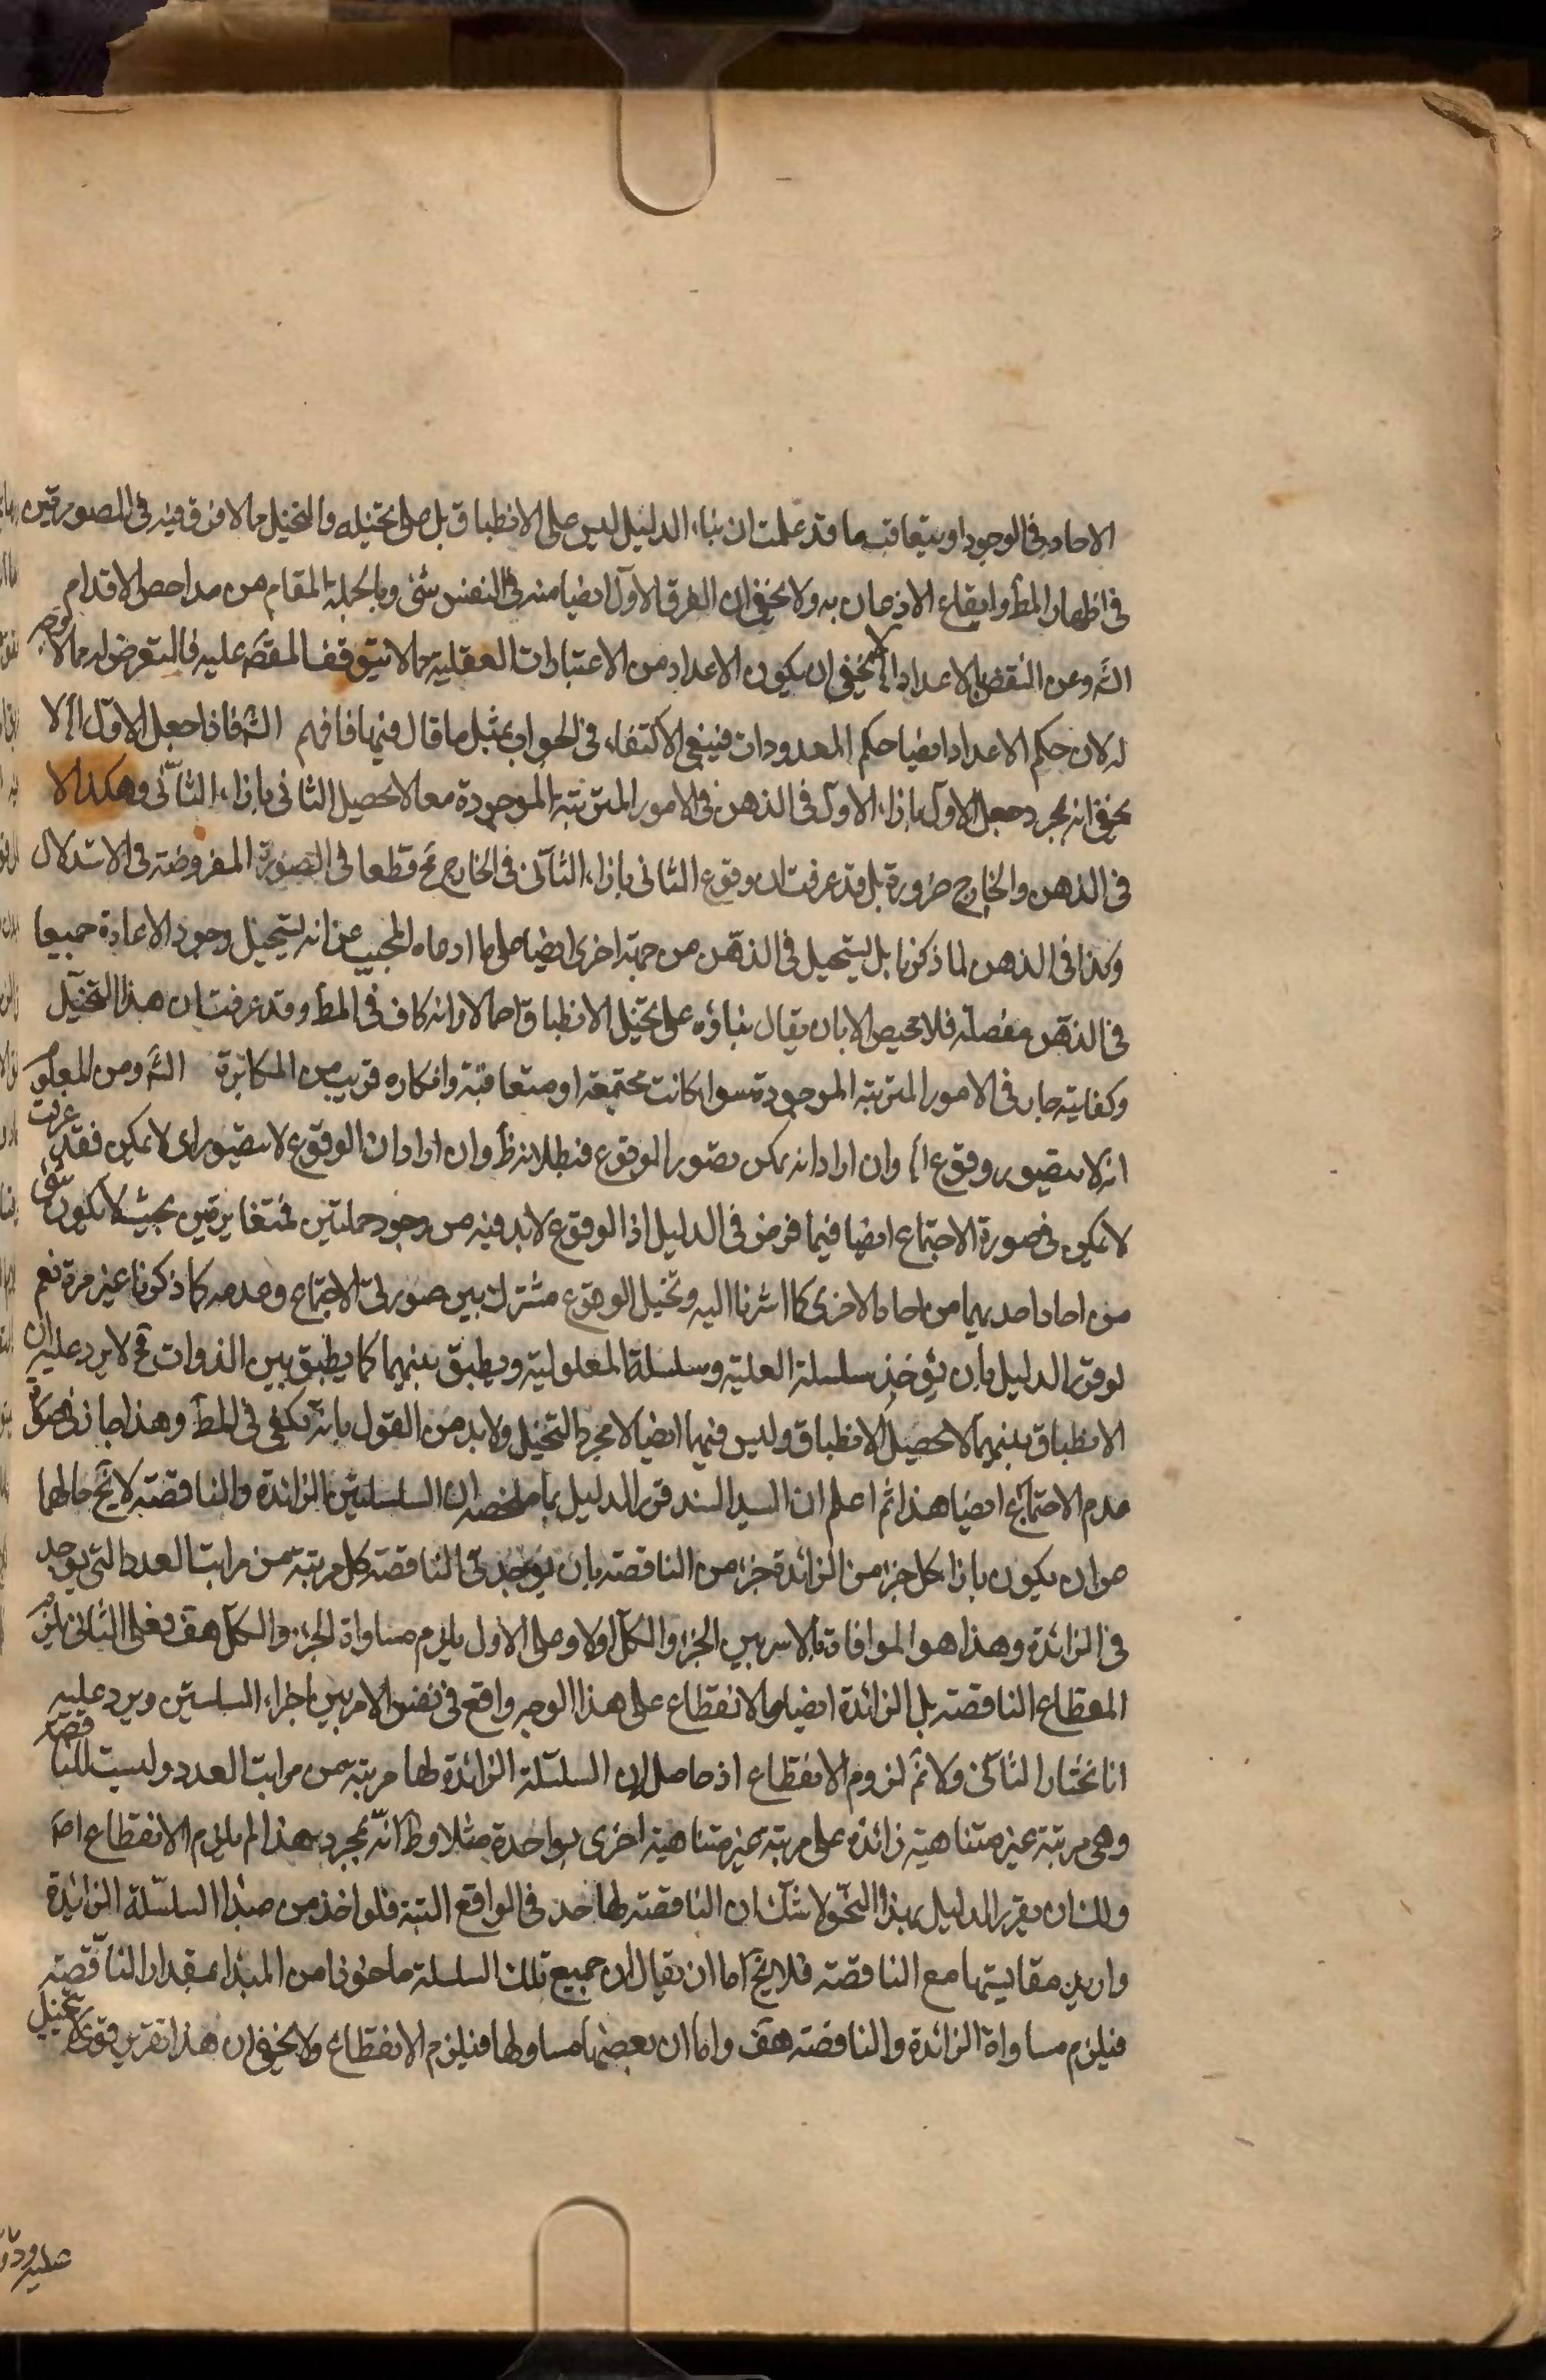 الاحاد فى الوجود او يتعاقب ما قد علمت ان بناء الدليل ليس على الانطباق بل على تخيله والتخيل مما لا فرق فيه فى الصورتين
فى اظهار المط وايقاع الاذعان به ولا يخفى ان الفرق الاول ايضا منه فى النفس شئ وبالجملة المقام من مداحض الاقدام
الش وعن النقض بالاعداد لا يخفى ان يكون الاعداد من الاعتبارات العقلية مما لا يتوقف المقص عليه فالتعرض له مما لا وجه
له لان حكم الاعداد ايضا حكم المعدودات فينبغى الاكتفاء فى الجواب بمثل ما قال فيها فافهم الش فاذا جعل الاول الخ لا
يخفى انه بمجرد جعل الاول بازاء الاول فى الذهن فى الامور المترتبة الموجودة معا لا يحصل الثانى بازاء الثانى وهكذا لا
فى الذهن والخارج ضرورة بل قد عرفت ان وقوع الثانى بازاء الثانى فى الخارج مح قطعا فى الصورة المفروضة فى الاستدلال
وكذا فى الذهن لما ذكرنا بل يستحيل فى الذهن من جهة اخرى ايضا على ما ادعاه المجيب عن انه يستحيل وجود الاعادة جميعا
فى الذهن مفصلة فلا محيص الا بان يقال بناؤه على تخيل الانطباق اجمالا وانه كاف فى المط وقد عرفت ان هذا التخيل
وكفايته جار فى الامور المترتبة الموجودة سواء كانت مجتمعة او متعاقبة وانكاره قريب من المكابرة الش ومن المعلوم
انه لا يتصور وقوع الخ وان اراد انه يمكن تصور الوقوع فبطلانه ظ وان اراد ان الوقوع لا يتصور اى لا يمكن فقد عرفت
لا يمكن فى صورة الاجتماع ايضا فيما فرض فى الدليل اذ الوقوع لابد فيه من وجود جملتين متغايرتين بحيث لا يكون شئ
من احاد احديهما من احاد الاخرى كما اشرنا اليه وتخيل الوقوع مشترك بين صورتى الاجتماع وعدمه كما ذكرنا غير مرة نعم
لو قرر الدليل بان يؤخذ سلسلة العلية وسلسلة المعلولية ويطبق بينهما كما يطبق بين الذوات فح لا يرد عليه ان
الانطباق بينهما لا يحصل الانطباق وليس فيهما ايضا الا مجرد التخيل ولابد من القول بانه يكفى فى المط وهذا جار فى صورة
عدم الاجتماع ايضا هذا ثم اعلم ان السيد السند قرر الدليل بما ملخصه ان السلسلتين الزائدة والناقصة لا يخ حالهما
من ان يكون بازاء كل جزء من الزائدة جزء من الناقصة بان يوجد فى الناقصة كل مرتبة من مراتب العدد التى يوجد
فى الزائدة وهذا هو الموافاة بالاسر بين الجزء والكل اولا وعلى الاول يلزم مساواة الجزء والكل هف وعلى الثانى يلزم
انقطاع الناقصة بل الزائدة ايضا والانقطاع على هذا الوجه واقع فى نفس الامر بين اجزاء السلسلتين ويرد عليه
انا نختار الثانى ولا نم لزوم الانقطاع اذ حاصله ان السلسلة الزائدة لها مرتبة من مراتب العدد وليست للناقصة
وهى مرتبة غير متناهية زائدة على مرتبة غير متناهية اخرى بواحدة مثلا وظ انه بمجرد هذا لم يلزم الانقطاع اص
ولك ان يقرر الدليل بهذا النحو لا شك ان الناقصة لها حد فى الواقع البتة فلو اخذ من مبدا السلسلة الزائدة
واريد مقايستها مع الناقصة فلا يخ اما ان يقال ان جميع تلك السلسلة ماخوذا من المبدا بمقدار الناقصة
فيلزم مساواة الزائدة والناقصة هف واما ان بعضها مساو لها فيلزم الانقطاع ولا يخفى ان هذا تقرير قوى لا تخييل